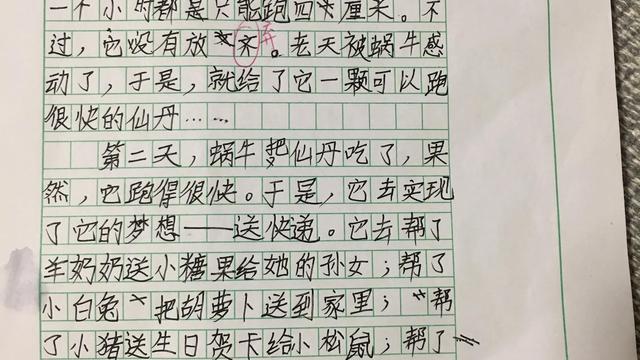 一个小时都是只能跑四厘米。不
过，它没有放弃。老天被蜗牛感
动了，于是，就给了它一颗可以跑
很快的仙丹……
第二天，蜗牛把仙丹吃了，果
然，它跑得很快。于是，它去实现
了它的梦想——送快递。它去帮了
羊奶奶送小糖果给她的孙女；帮了
小白兔把胡萝卜送到家里；帮
了小猪送生日贺卡给小松鼠；帮了